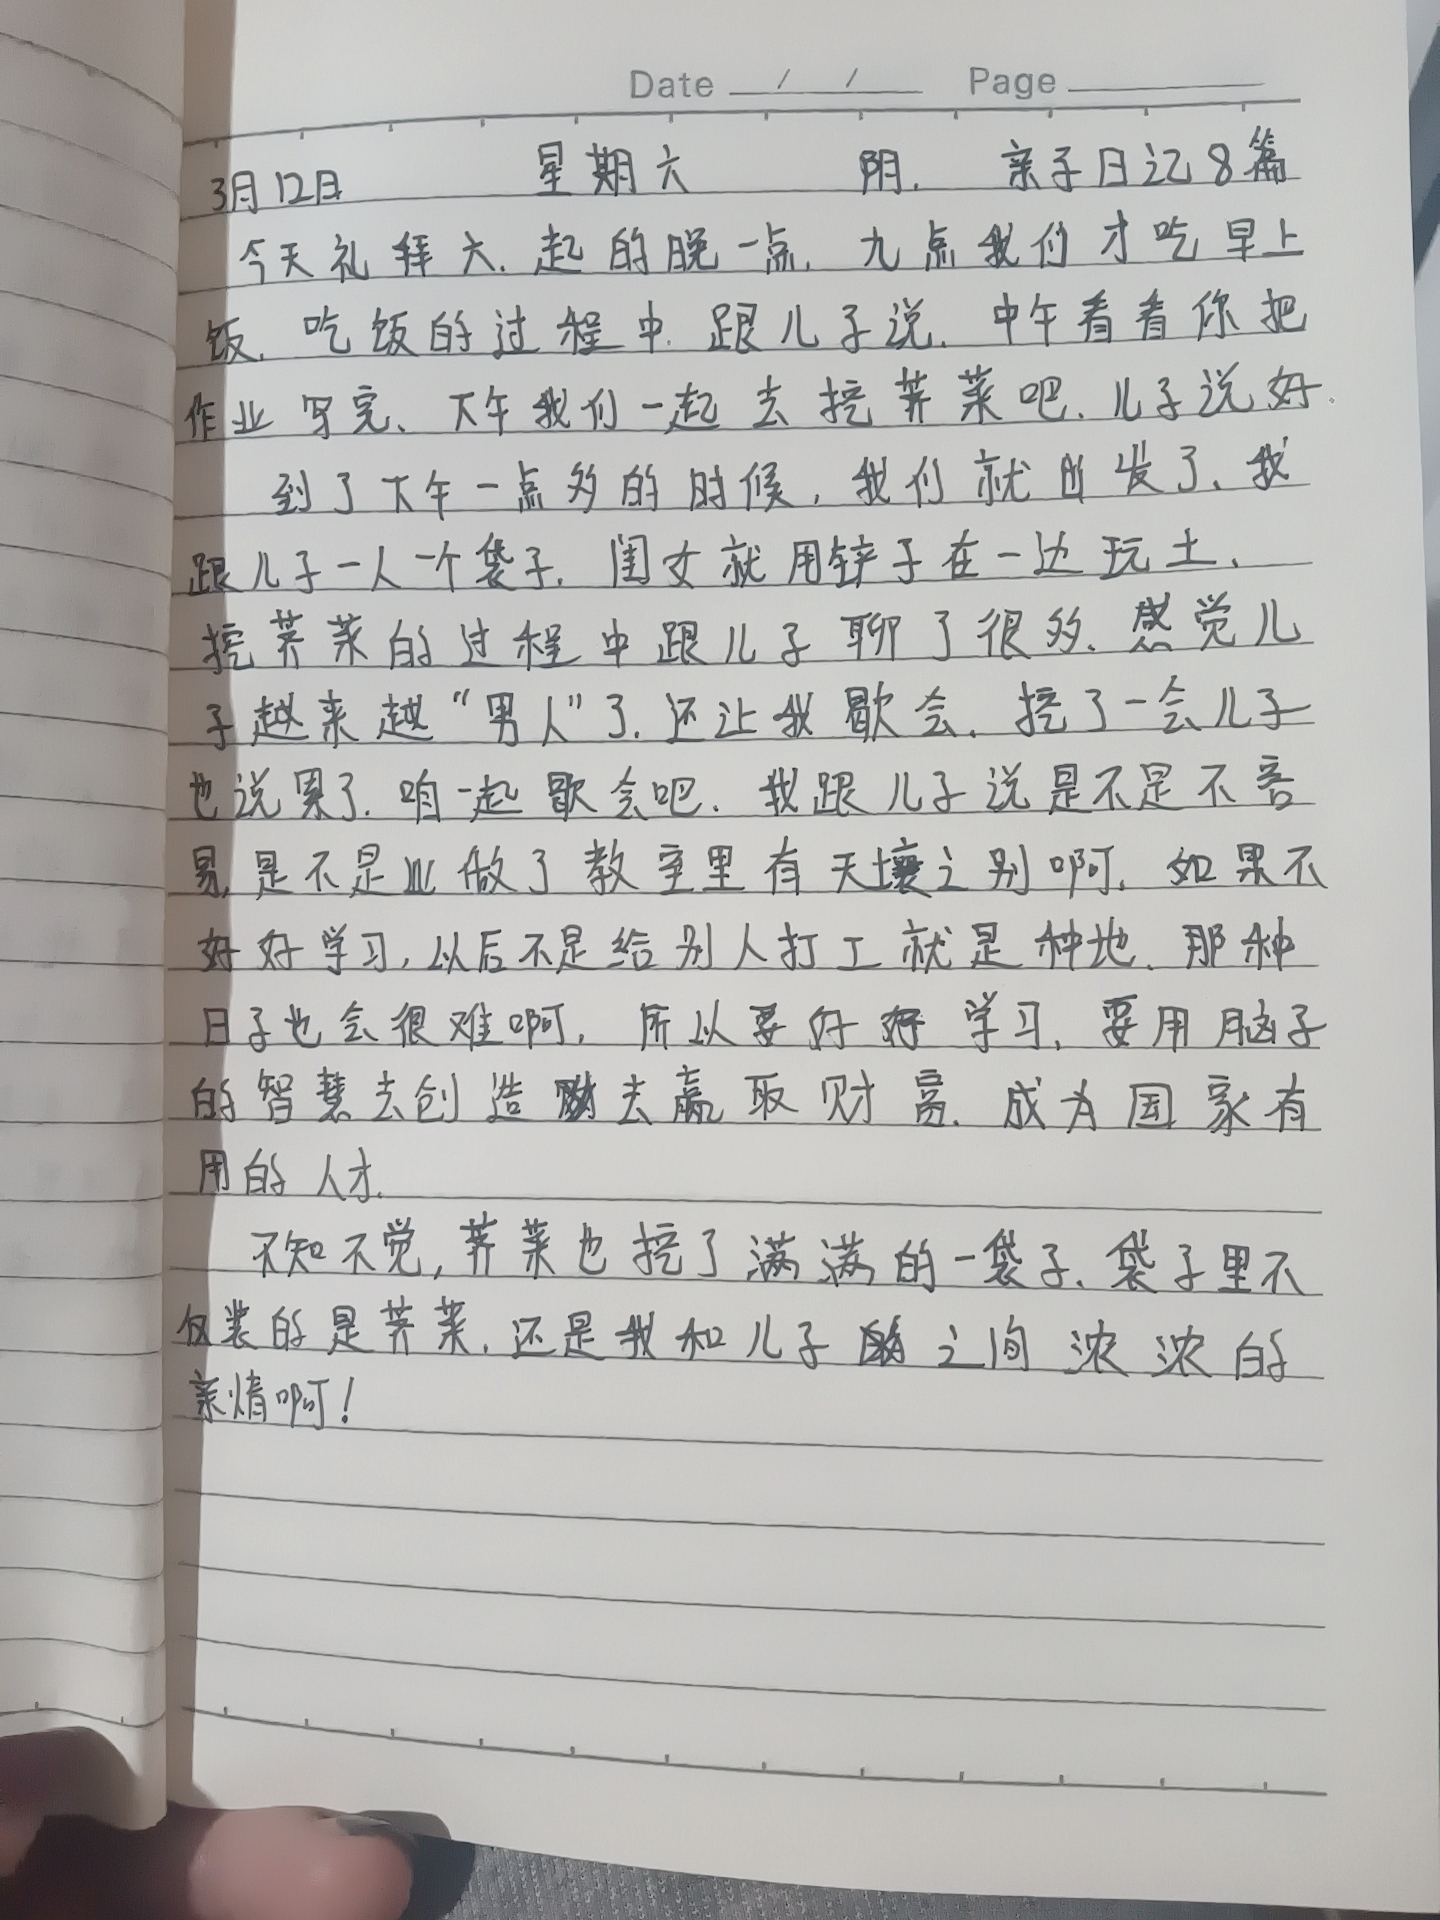 Date / / Page
3月12日 星期六 阴. 亲子日记8篇
今天礼拜六.起的晚一点.九点我们才吃早上
饭.吃饭的过程中.跟儿子说.中午看看你把
作业写完、下午我们一起去挖荠菜吧.儿子说好.
到了下午一点多的时候,我们就出发了、我
跟儿子一人一个袋子.闺女就用铲子在一边玩土、
挖荠菜的过程中跟儿子聊了很多.感觉儿
子越来越“男人”了.还让我歇会.挖了一会儿子
也说累了.咱一起歇会吧.我跟儿子说是不是不容
易,是不是业做了教室里有天壤之别啊.如果不
好好学习,以后不是给别人打工就是种地.那种
日子也会很难啊,所以要好好学习.要用脑子
的智慧去创造去赢取财富.成为国家有
用的人才.
不知不觉,荠菜也挖了满满的一袋子、袋子里不
仅装的是荠菜.还是我和儿子之间浓浓的
亲情啊!